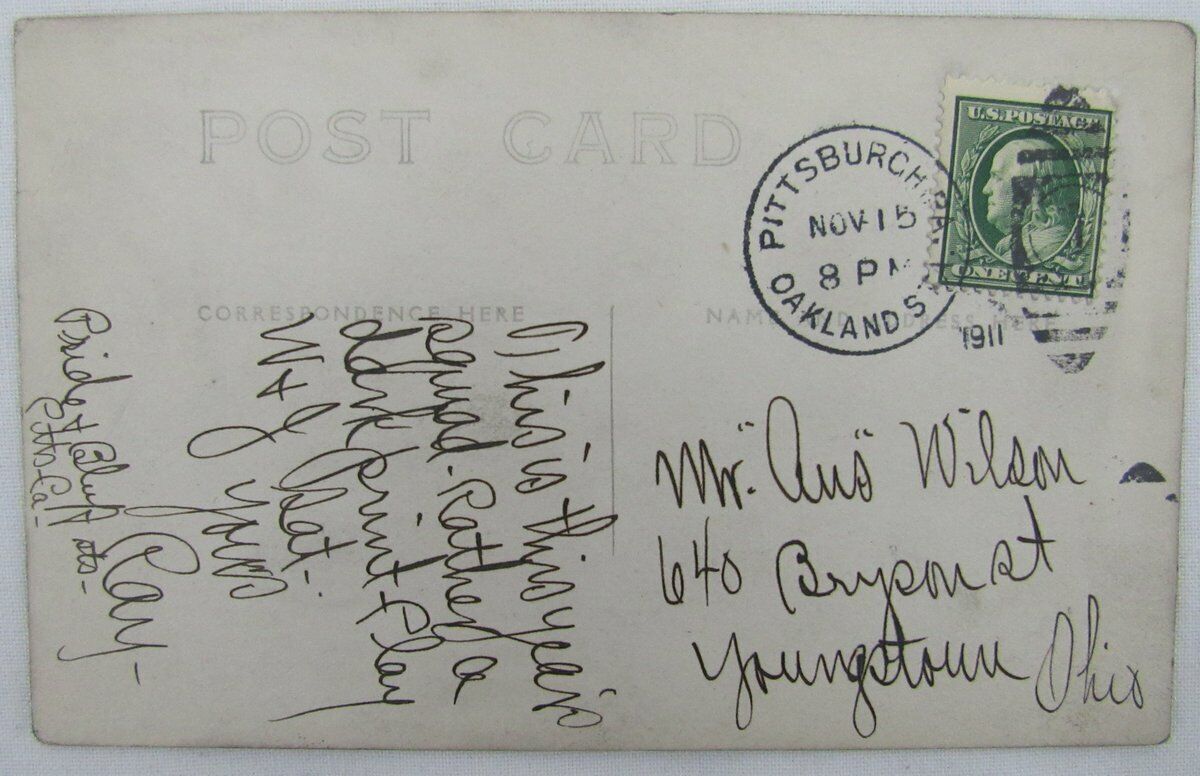 POST CARD
PITTSBURGH, PA.
NOV 15
8 PM
OAKLAND STA
1911
U.S. POSTAGE
ONE CENT
CORRESPONDENCE HERE
NAME AND ADDRESS HERE
This is this year's
squad. Rather a
dark print. Play
W & J Sat.
Yours
Ray
Pride & Bluff sts.
Pitts Pa
Mr. "Aus" Wilson
640 Bryson st
Youngstown Ohio